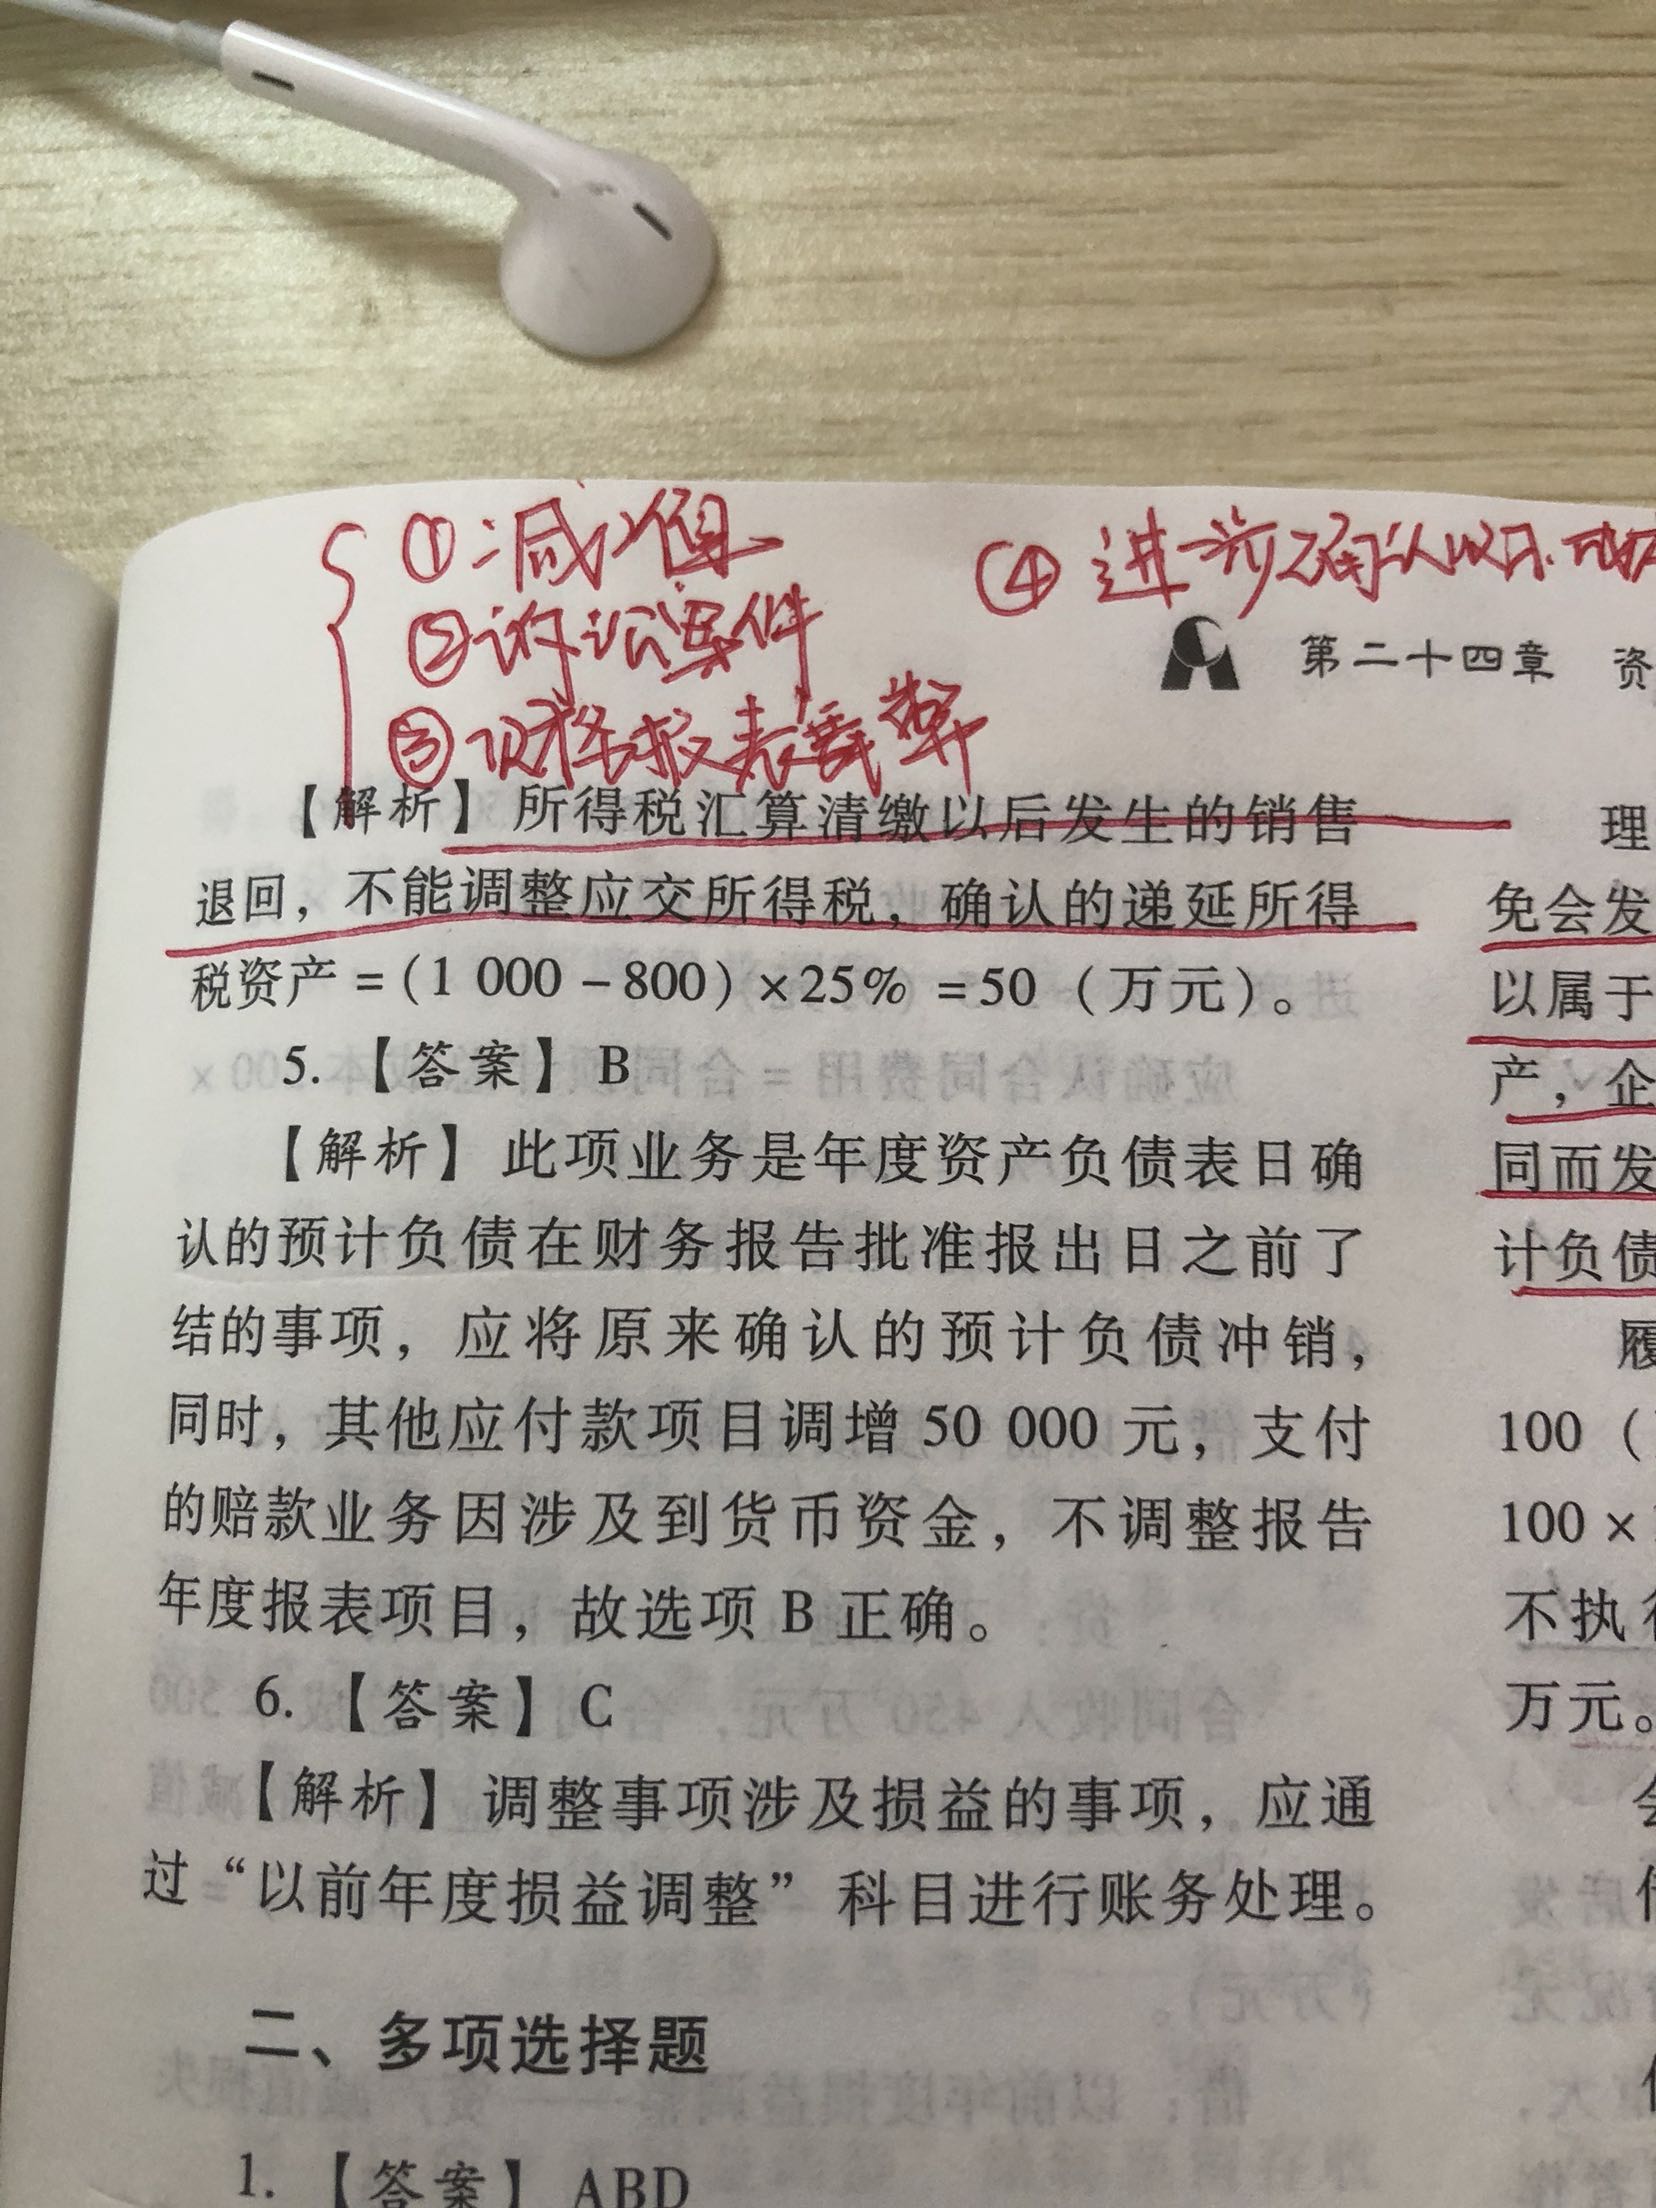 ①减值
②诉讼案件
③财务报表舞弊
④进一步确认
第二十四章 资
【解析】所得税汇算清缴以后发生的销售
退回，不能调整应交所得税，确认的递延所得
税资产=(1 000-800)×25% =50（万元）。
5.【答案】B
【解析】此项业务是年度资产负债表日确
认的预计负债在财务报告批准报出日之前了
结的事项，应将原来确认的预计负债冲销，
同时，其他应付款项目调增 50 000 元，支付
的赔款业务因涉及到货币资金，不调整报告
年度报表项目，故选项 B 正确。
6.【答案】C
【解析】调整事项涉及损益的事项，应通
过“以前年度损益调整”科目进行账务处理。
二、多项选择题
1.【答案】ABD
理
免会发
以属于
产，企
同而发
计负债
履
100（
100×
不执行
万元。